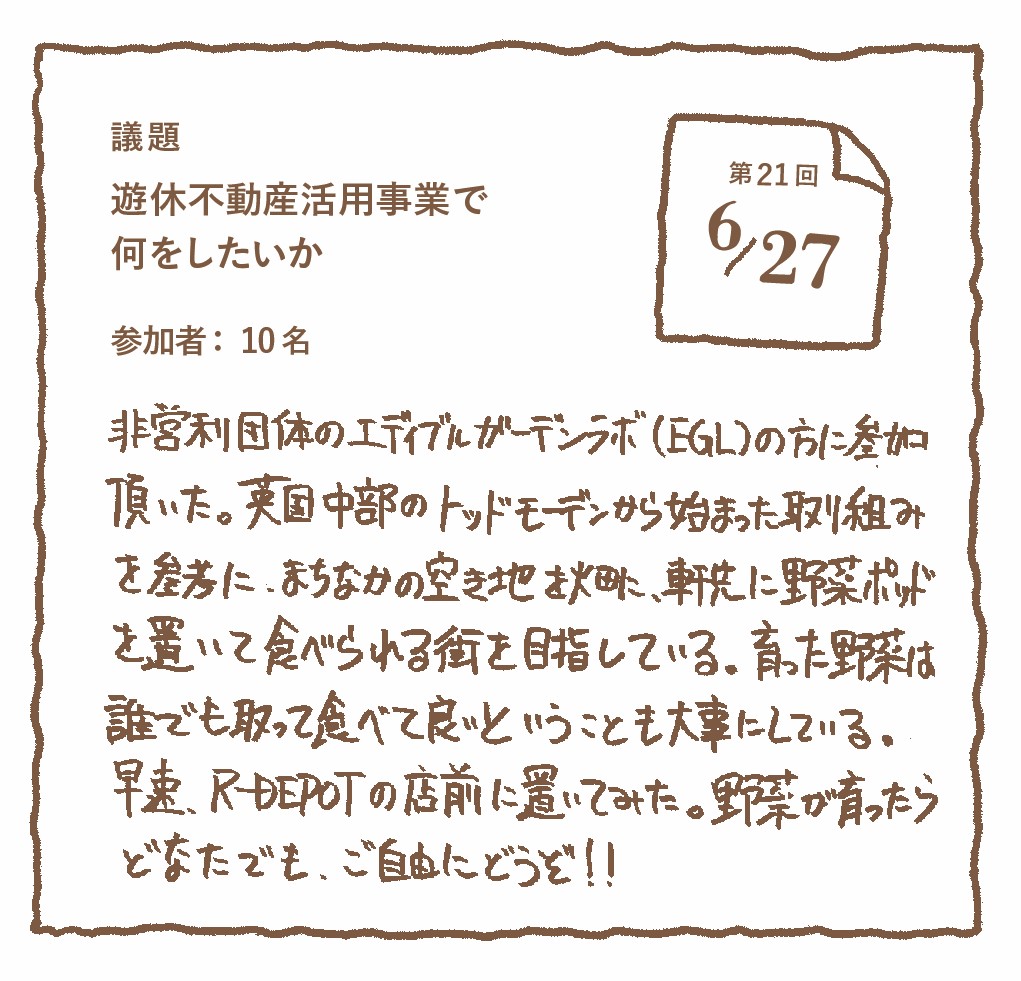 議題
第21回
6/27
遊休不動産活用事業で
何をしたいか
参加者：10名
非営利団体のエディブルガーデンラボ（EGL）の方に参加
頂いた。英国中部のトッドモーデンから始まった取り組み
を参考に、まちなかの空き地を畑に、軒先に野菜ポッド
を置いて食べられる街を目指している。育った野菜は
誰でも取って食べて良いということも大事にしている。
早速、R-DEPOTの店前に置いてみた。野菜が育ったら
どなたでも、ご自由にどうぞ!!